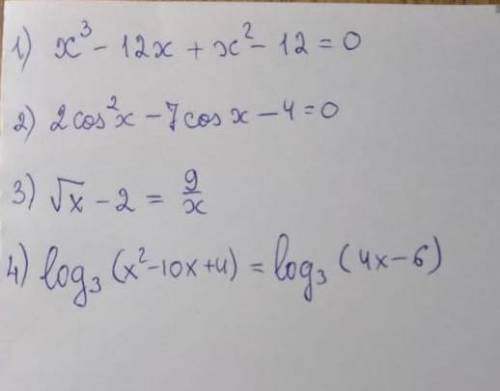 1) x³ - 12x + x² - 12 = 0
2) 2cos²x - 7cos x - 4 = 0
3) √x - 2 = 9/x
4) log₃ (x² - 10x + 4) = log₃ (4x - 6)